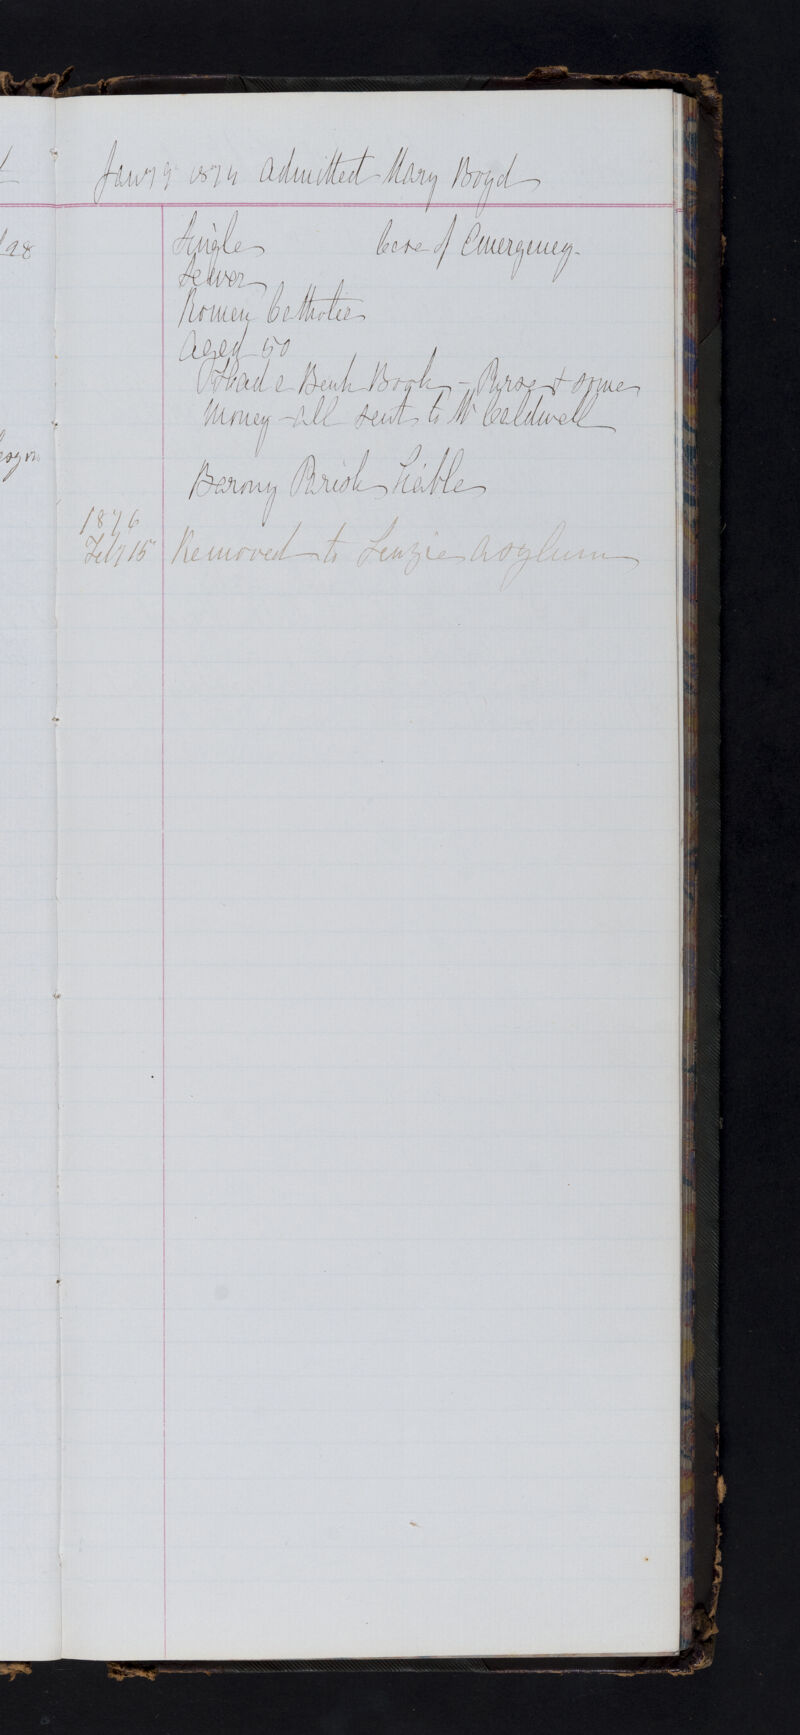 Jany 9 1874 Admitted Mary Boyd
Single Case of Emergency.
Sewer
Roman Catholic
Aged 50
had a Bank Book - Purse & some
money - all sent to Mr Caldwell
Barony Parish Liable
1876
Feby 15 Removed to Lenzie Asylum